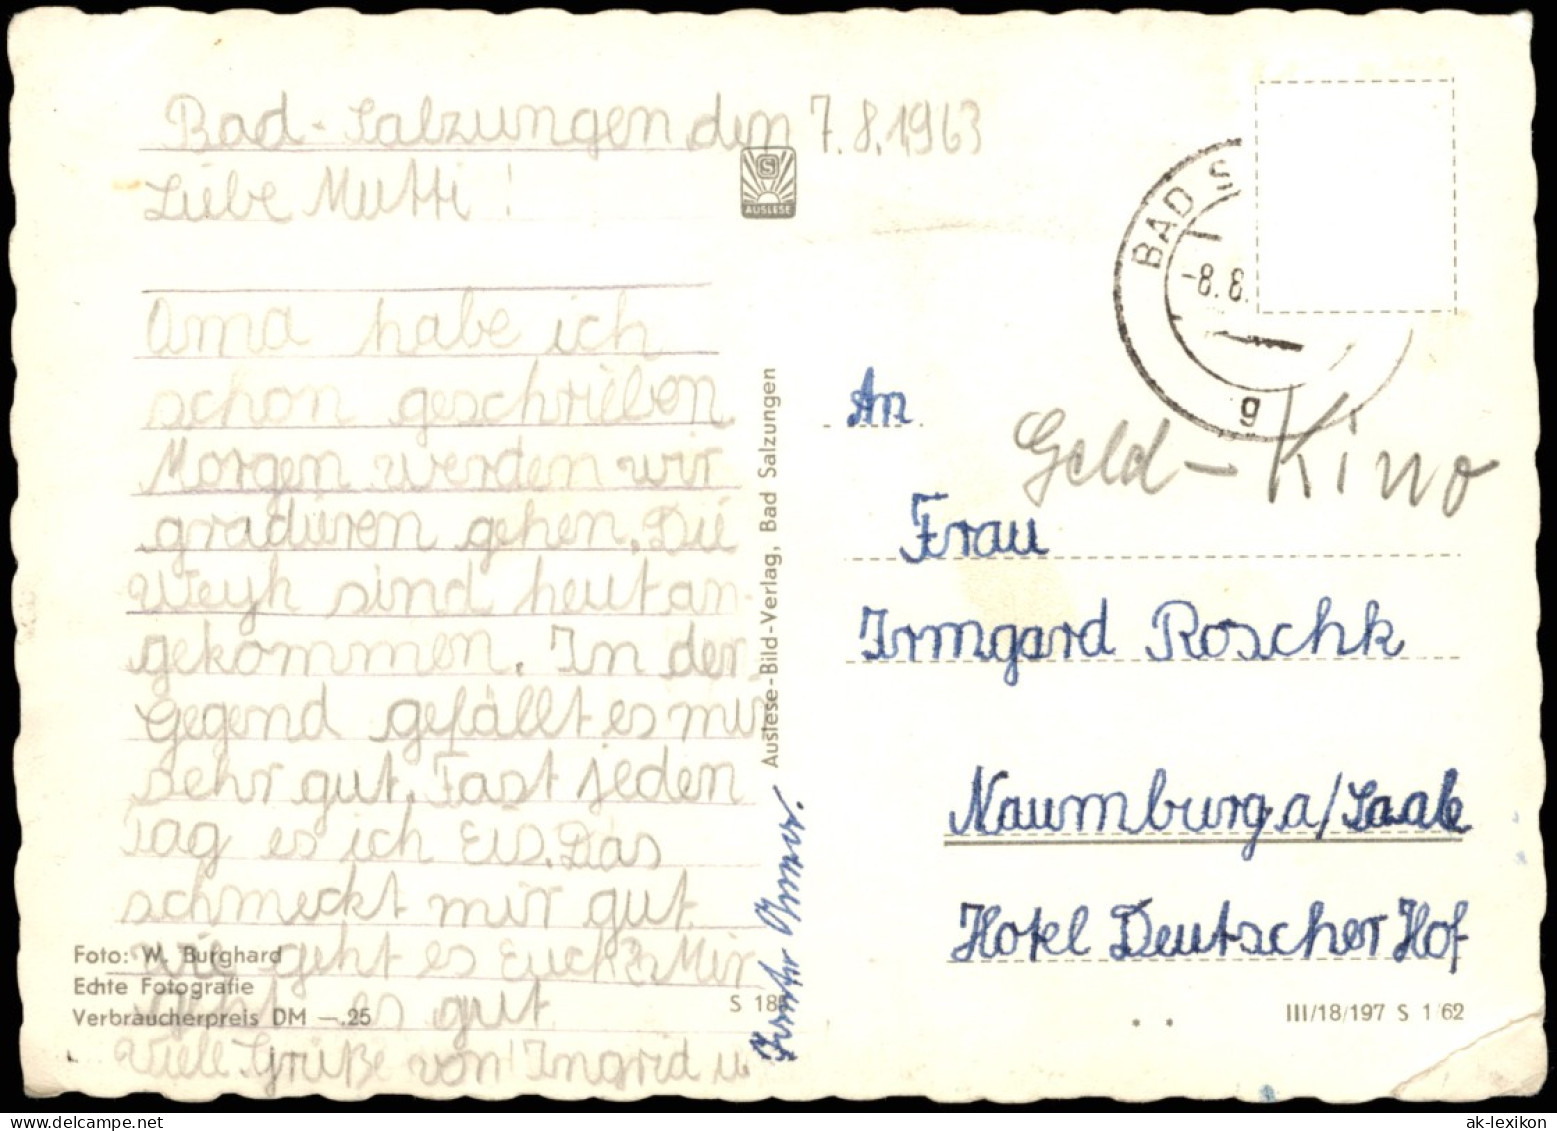 Bad-Salzungen den 7.8.1963
Liebe Mutti!
Oma habe ich
schon geschrieben
Morgen werden wir
gradieren gehen. Die
Weyh sind heut an-
gekommen. In der
Gegend gefällt es mir
sehr gut. Fast jeden
Tag es ich Eis. Das
schmeckt mir gut.
wie geht es Euch? Mir
geht es gut
Viele Grüße von Ingrid u.
Foto: W. Burghard
Echte Fotografie
Verbraucherpreis DM —.25
S
AUSLESE
Auslese-Bild-Verlag, Bad Salzungen
S 18
BAD S
-8. 8.
g
An
Geld - Kino
Frau
Irmgard Roschk
Naumburg a/Saale
Hotel Deutscher Hof
III/18/197 S 1/62
ak-lexikon